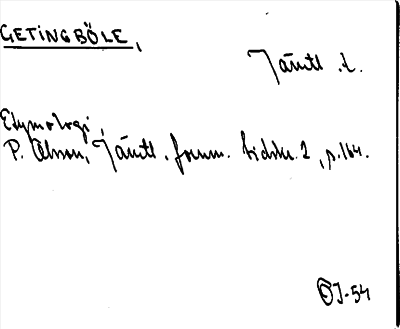 GETINGBÖLE,
Jämtl. l.
Etymologi,
P. Olsson, Jämtl. fornm. tidskr. 2, s. 164.
ÖJ-54